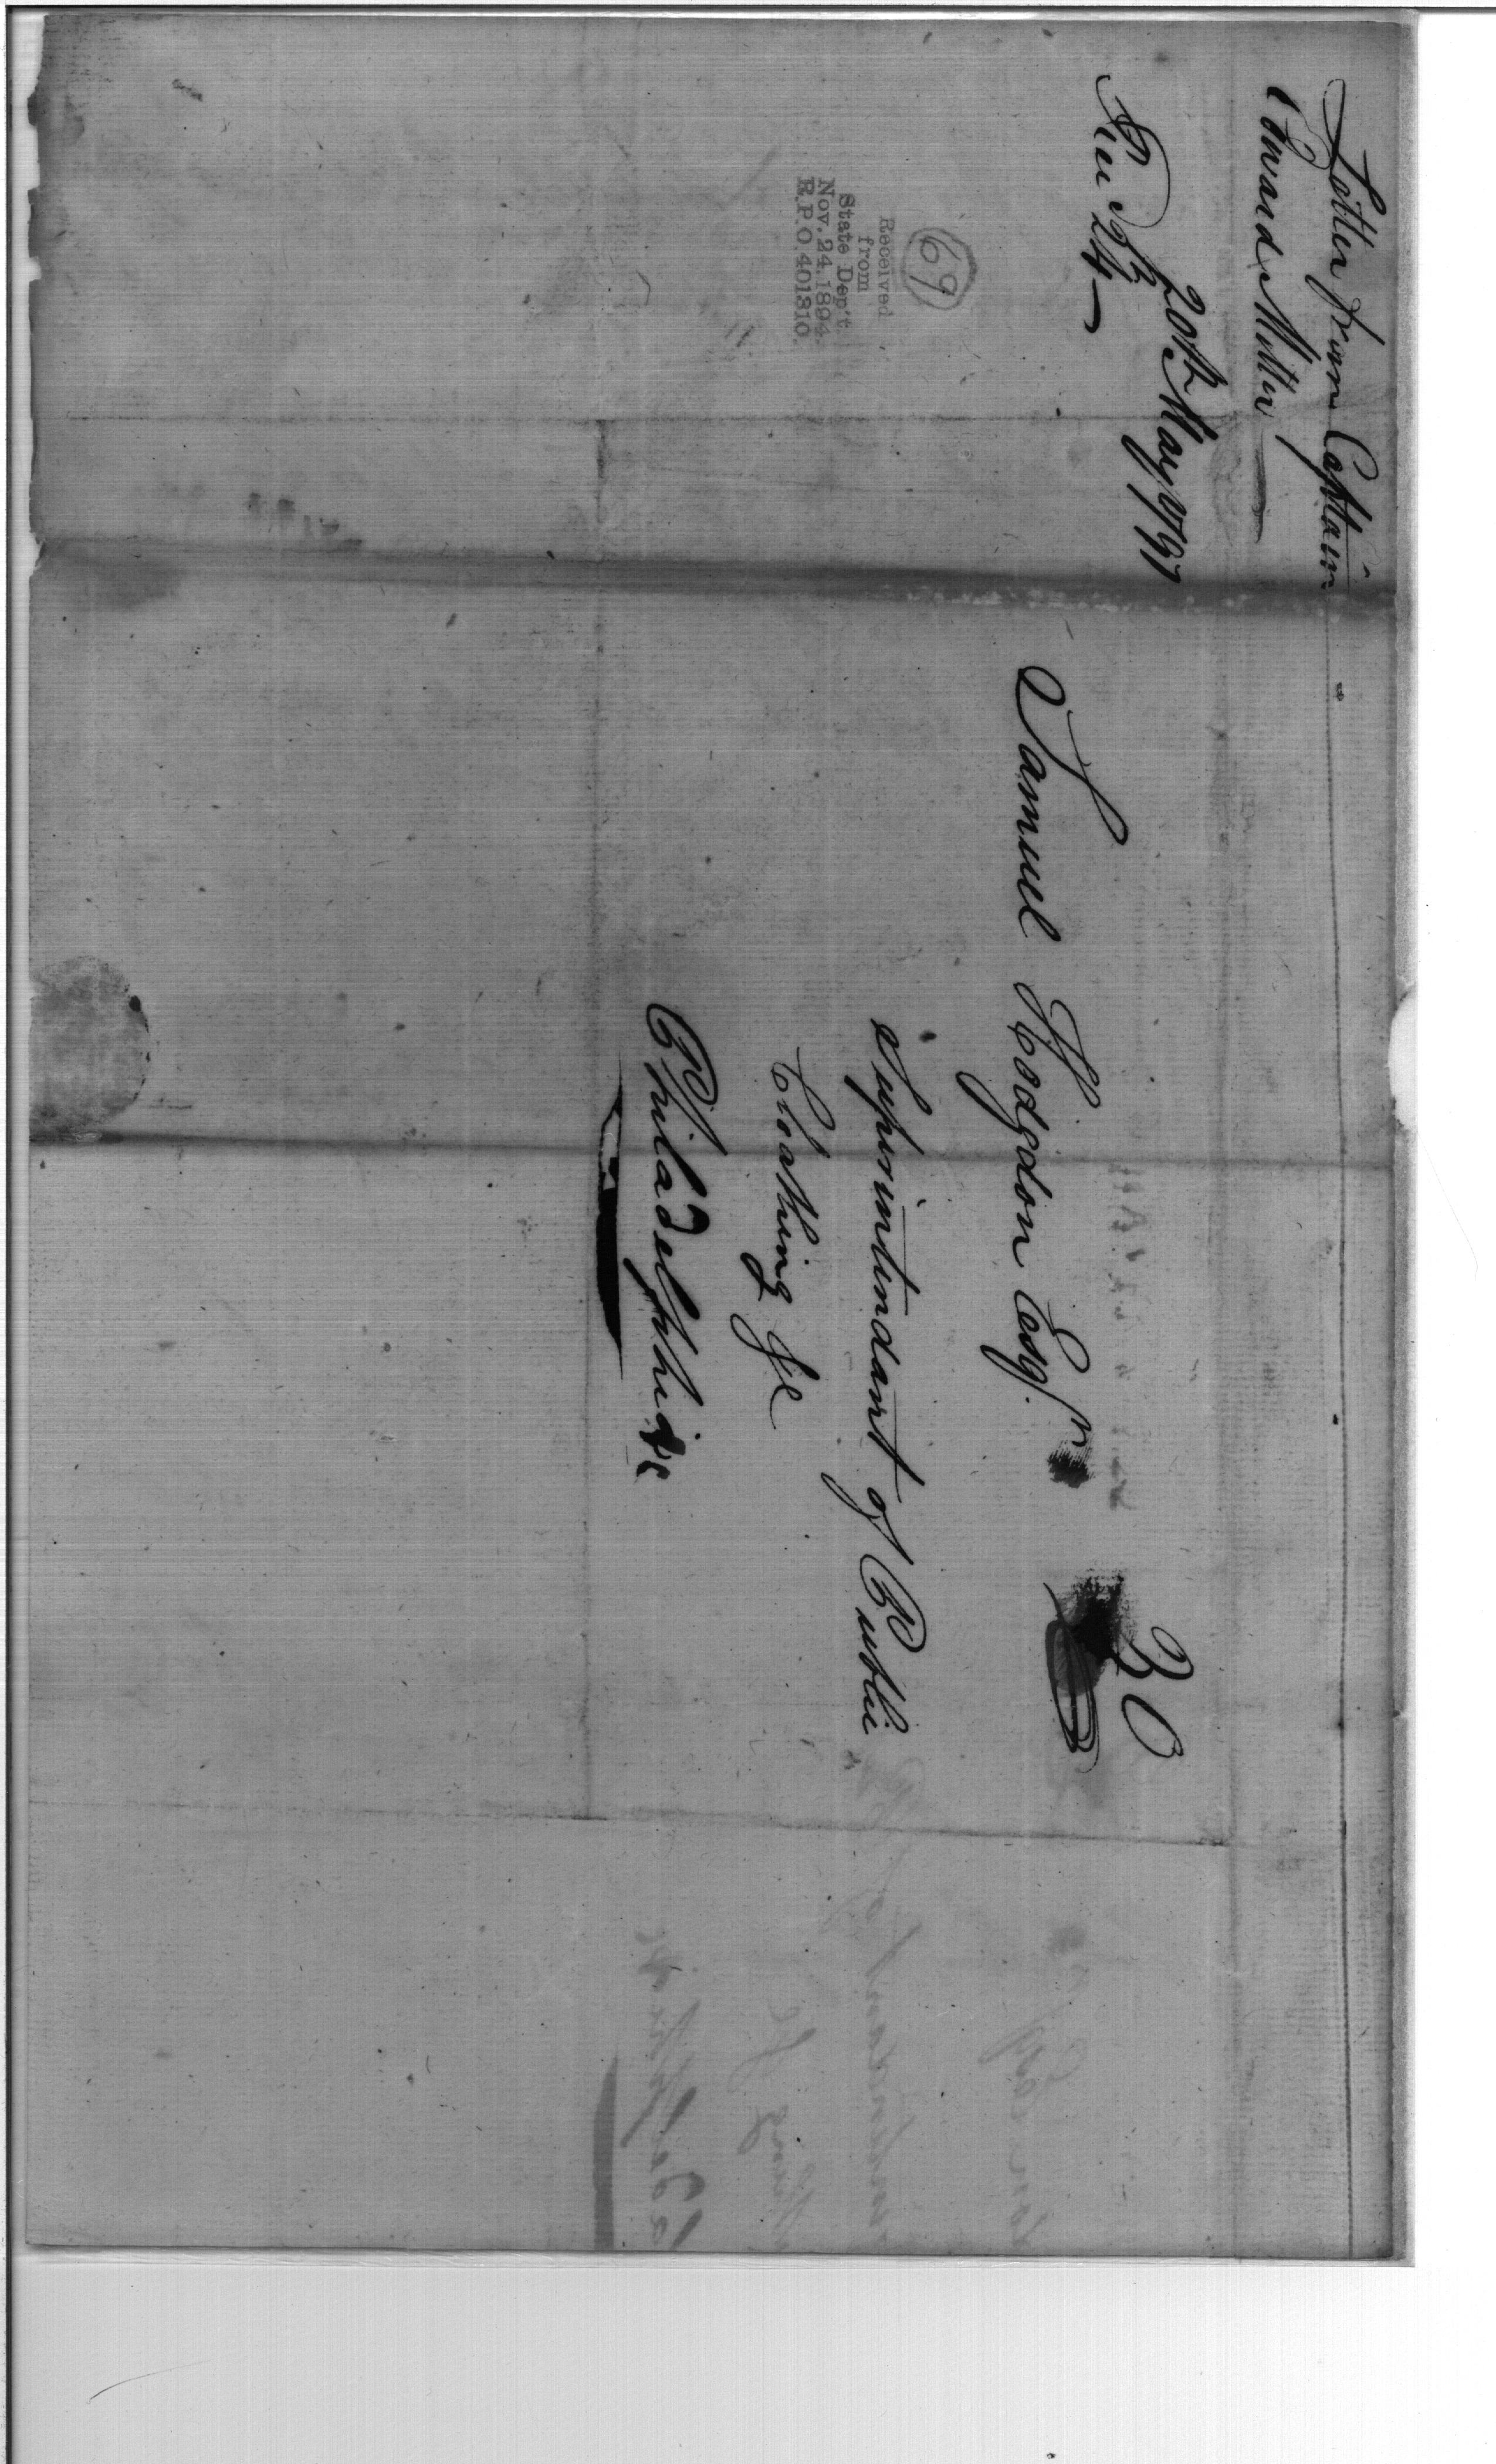 Letter from Captain
Edward Miller
20th May 1797
Rec 24
69
Received
from
State Dep't.
Nov. 24, 1894.
R.P.O. 401310.
30
Samuel Hodgdon Esqr.
Superintendant of Public
Cloathing &c
Philadelphia